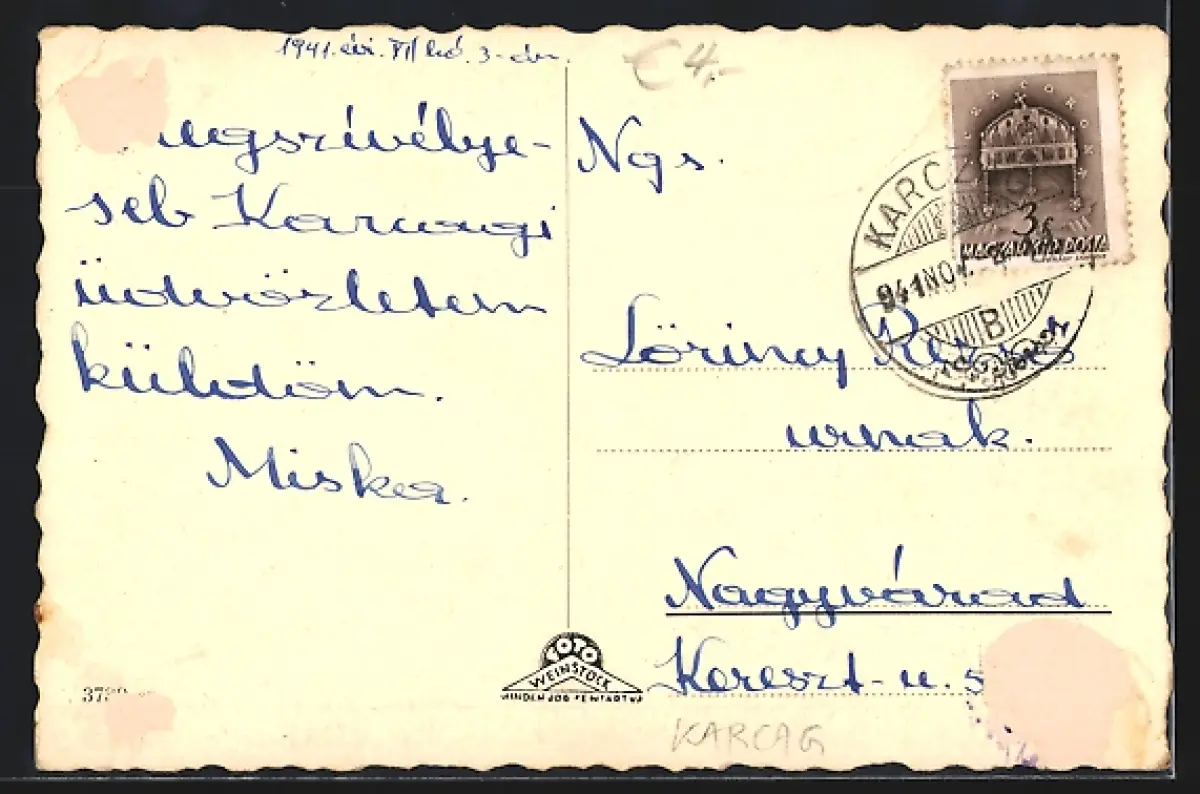 1941. évi. VII hó. 3-án.
€ 4.-
ugszívélye-
seb Karcagi
üdvözletem
küldöm.
Miska.
Ngs.
Lőrincy
urnak.
Nagyvárad
Kereszt-u. 5
KARC
941 NOV.
B
3
MAGYAR KIR. POSTA
FOTO
WEINSTOCK
MINDEN JOG FENTARTVA
373
KARCAG